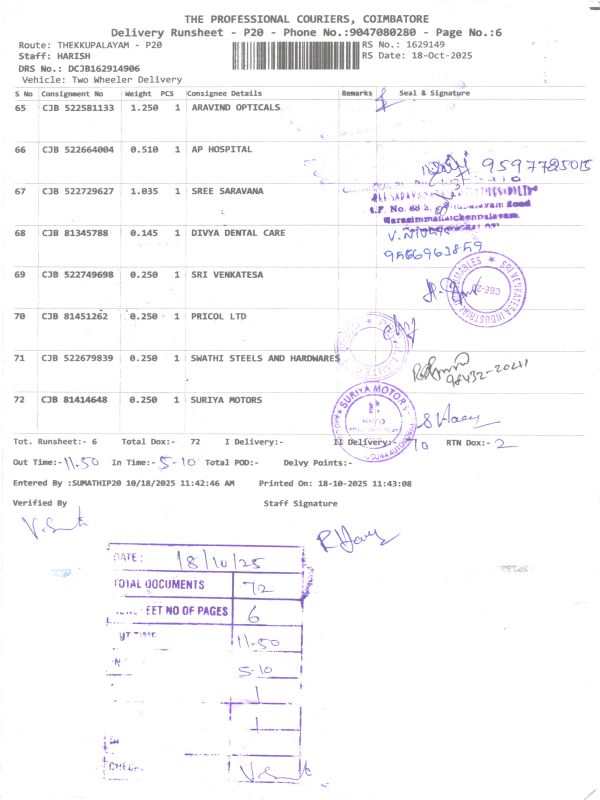 THE PROFESSIONAL COURIERS, COIMBATORE
Delivery Runsheet - P20 - Phone No.:9047080280 - Page No.:6
Route: THEKKUPALAYAM - P20 RS No.: 1629149
Staff: HARISH RS Date: 18-Oct-2025
DRS No.: DCJB162914906
Vehicle: Two Wheeler Delivery
S No Consignment No Weight PCS Consignee Details Remarks Seal & Signature
65 CJB 522581133 1.250 1 ARAVIND OPTICALS
66 CJB 522664004 0.510 1 AP HOSPITAL
9597785015
67 CJB 522729627 1.035 1 SREE SARAVANA
S.F. No. 88
Road
Narasimmanaickenpalayam.
68 CJB 81345788 0.145 1 DIVYA DENTAL CARE
9566963859
69 CJB 522749698 0.250 1 SRI VENKATESA
SRI VENKATESA INDUSTRIAL
70 CJB 81451262 0.250 1 PRICOL LTD
71 CJB 522679839 0.250 1 SWATHI STEELS AND HARDWARES
98432-20211
72 CJB 81414648 0.250 1 SURIYA MOTORS
SURIYA MOTORS
Tot. Runsheet:- 6 Total Dox:- 72 I Delivery:- II Delivery:- 70 RTN Dox:- 2
Out Time:- 11.50 In Time:- 5-10 Total POD:- Delvy Points:-
Entered By :SUMATHIP20 10/18/2025 11:42:46 AM Printed On: 18-10-2025 11:43:08
Verified By Staff Signature
DATE: 18/10/25
TOTAL DOCUMENTS 72
EET NO OF PAGES 6
TIME 11-50
5-10
1
1